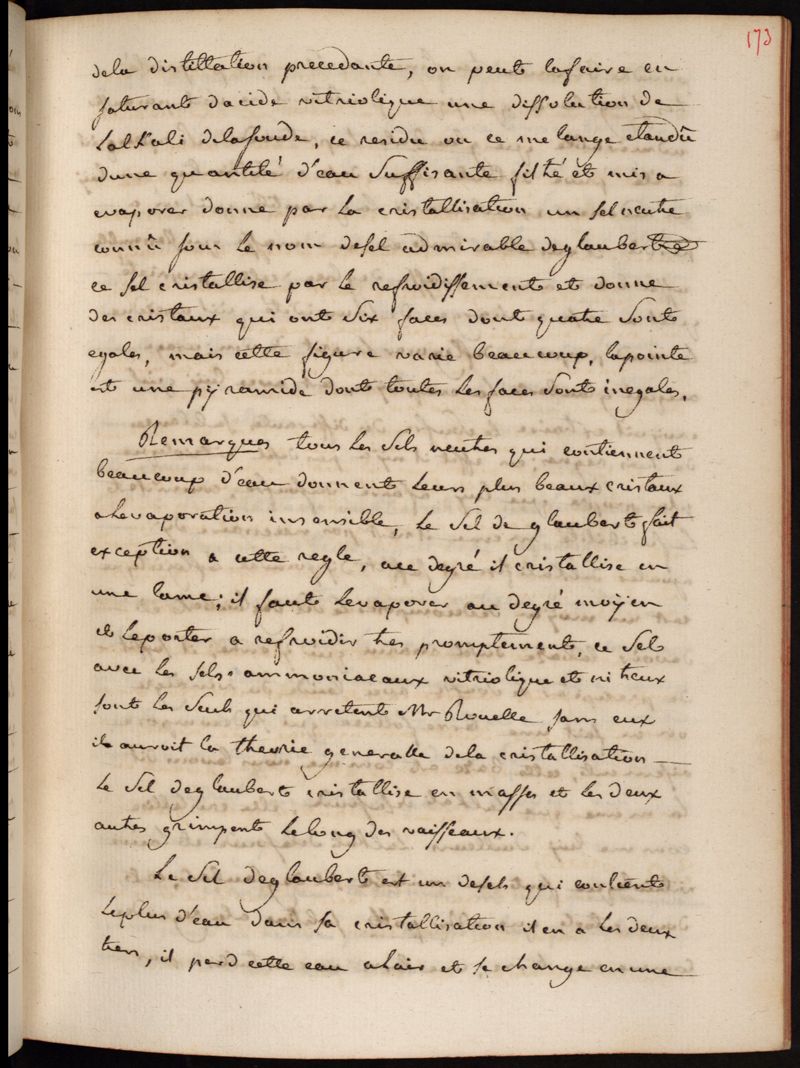 173
dela distillation precedante, on peut lafaire en
saturant dacide vitriolique une dissolution de
Lalkali delasoude, ce residu ou ce melange etandû
dune quantité d'eau suffisante filtré et mis a
evaporer donne par la cristallisation un sel neutre
connû sous le nom desel admirable deglauber
ce sel cristallise par le refroidissement et donne
des cristaux qui ont six faces dont quatre sont
egales, mais cette figure varie beaucoup, lapointe
est une pyramide dont toutes les faces sont inegales.
Remarques tous les sels neutres qui contiennent
beaucoup d'eau donnent leurs plus beaux cristaux
a levaporation insensible, le sel de glaubert fait
exception a cette regle, ace degré il cristallise en
une lame; il faut levaporer au degré moyen
et leporter a refroidir tres promptement, ce sel
avec les sels ammoniacaux vitriolique et nitreux
sont les seuls qui arretent Mr Rouelle, sans eux
il auroit la theorie generalle dela cristallisation —
Le sel deglaubert cristallise en masses et les deux
autres grimpent lelong des vaisseaux.
Le sel deglaubert est un desels qui contient
leplus d'eau dans sa cristallisation il en a les deux
tiers, il perd cette eau alair et se change en une